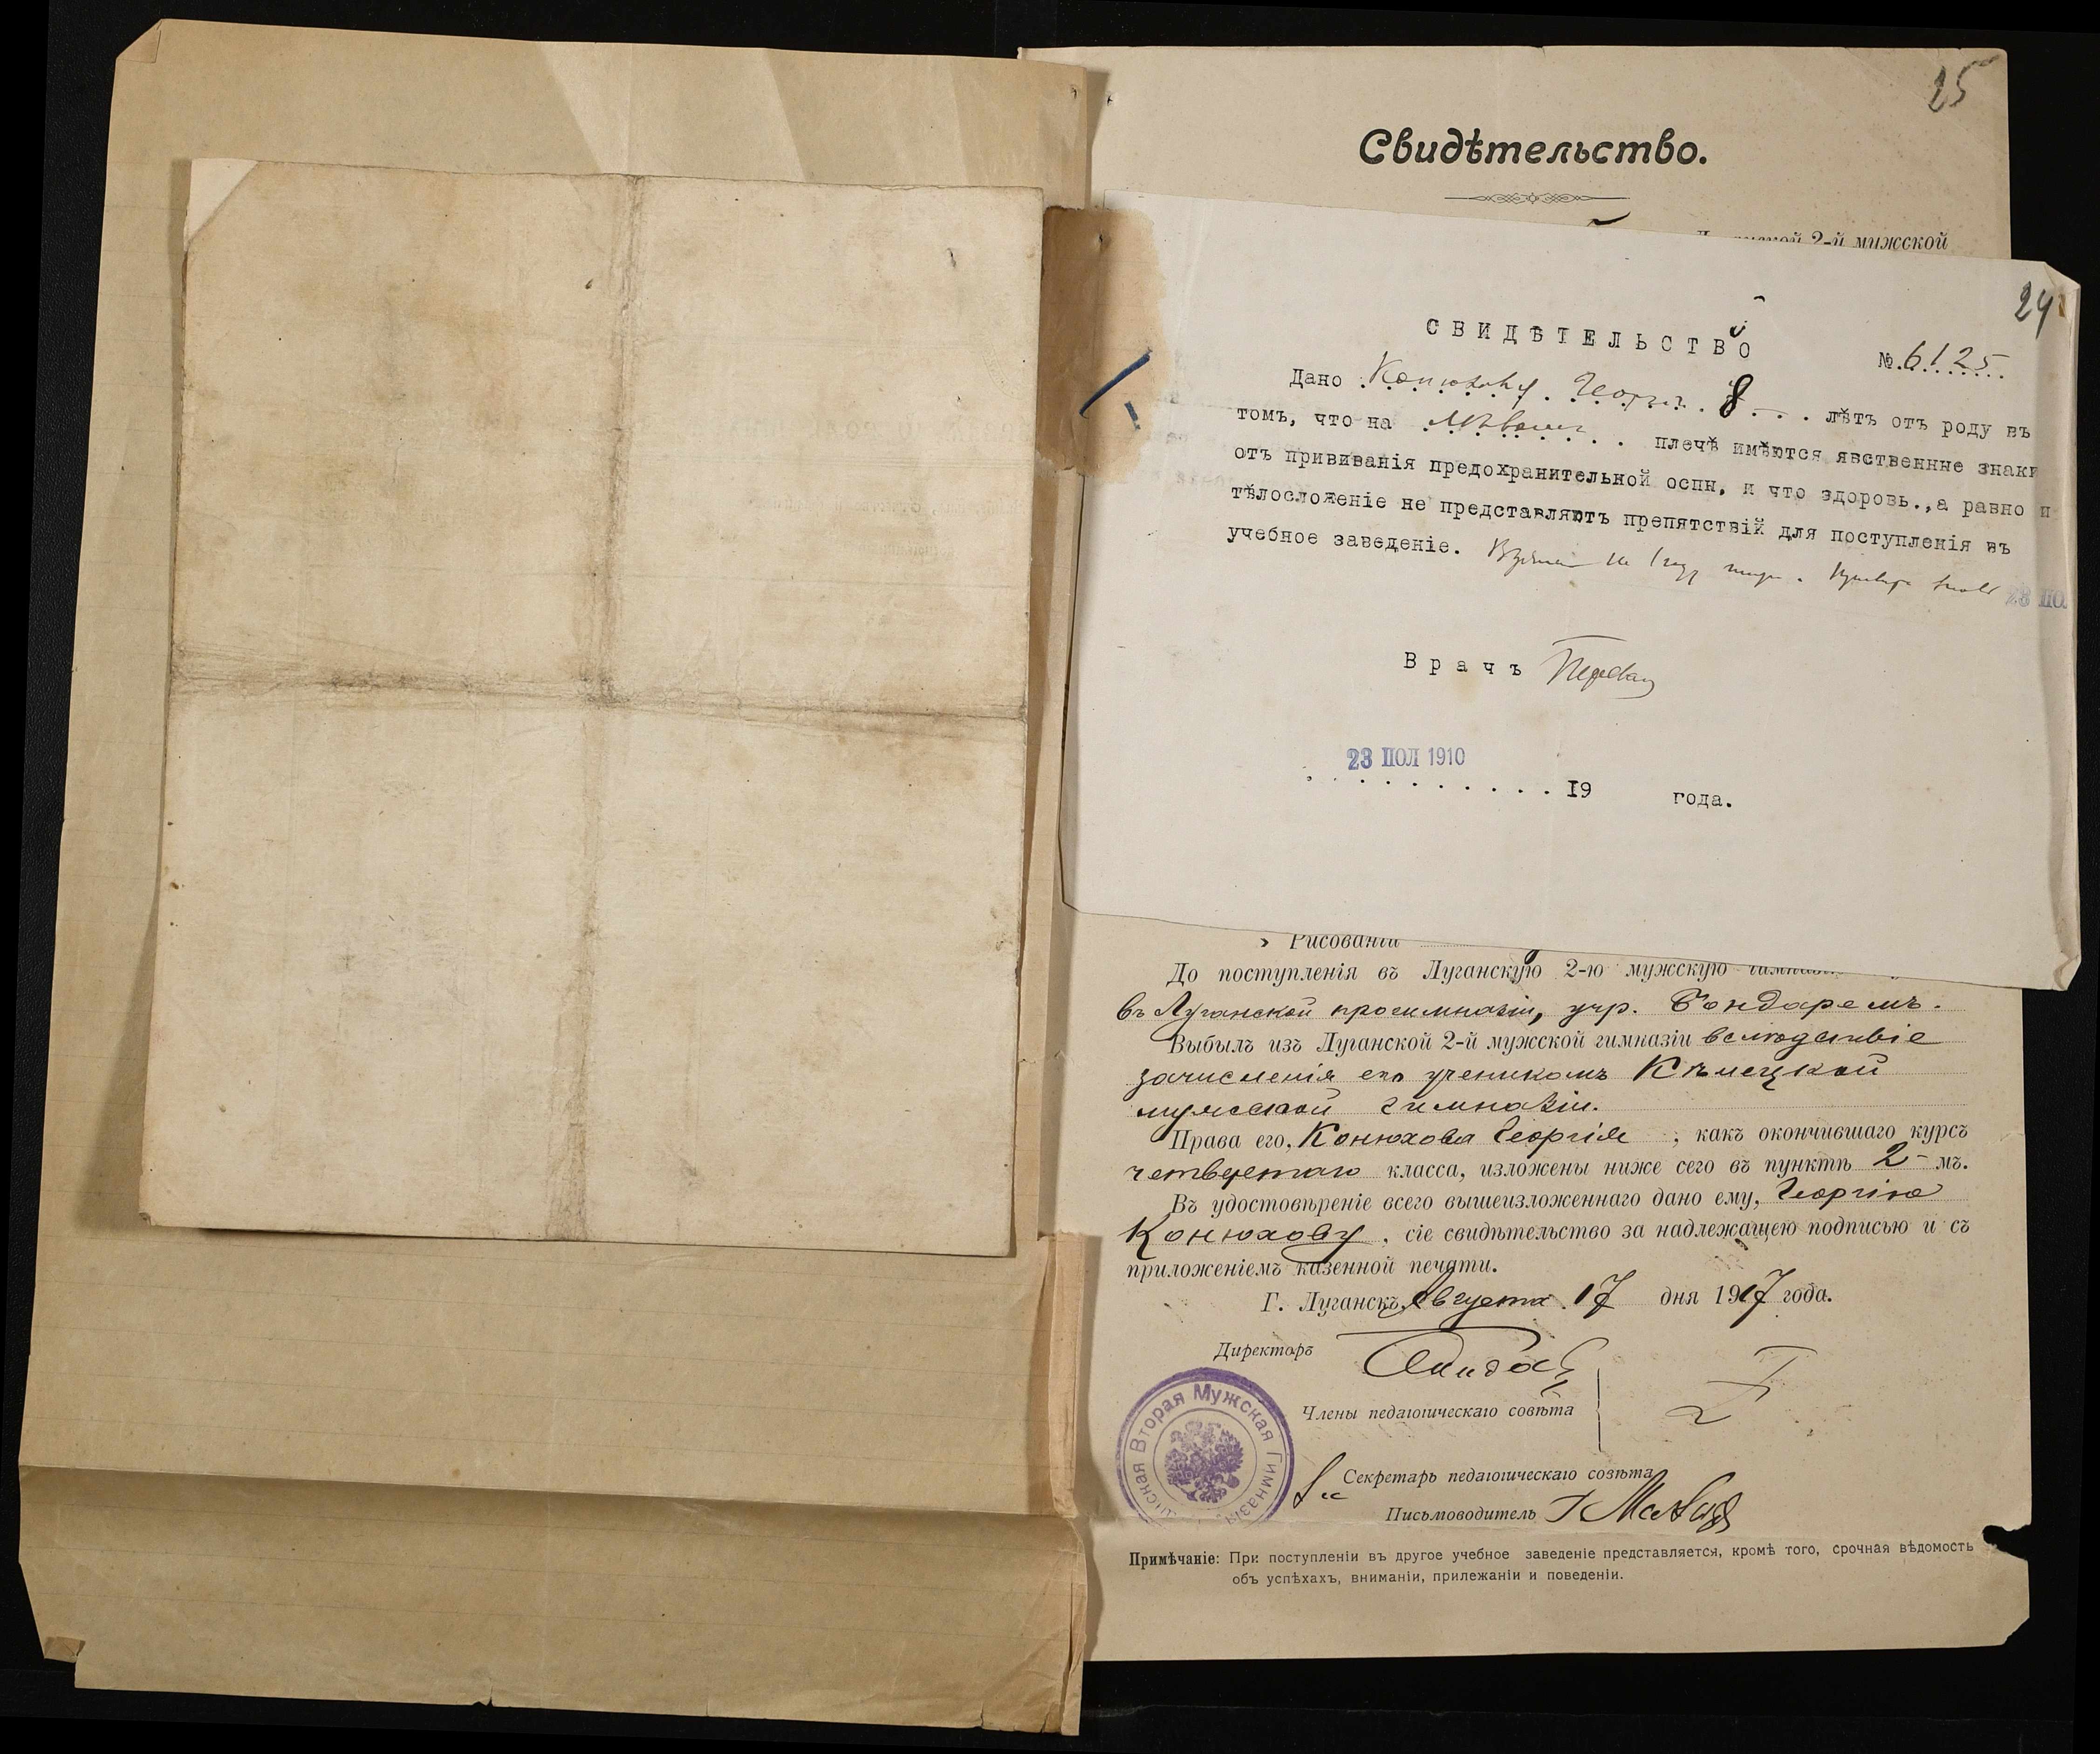 25
Свидѣтельство.
2-й мужской
24
СВИДѢТЕЛЬСТВО
№ 6125
Дано Конюхову Георг. 8 лѣтъ отъ роду въ
томъ, что на плечѣ имѣются явственные знаки
отъ прививанія предохранительной оспы, и что здоровь.,а равно и
тѣлосложеніе не представляютъ препятствій для поступленія въ
учебное заведеніе.
Врачъ
23 ІЮЛ 1910
19 года.
» Рисованіи
До поступленія въ Луганскую 2-ю мужскую
въ Луганской прогимназіи, учр. Бондаремъ.
Выбылъ изъ Луганской 2-й мужской гимназіи вслѣдствіе
зачисленія его ученикомъ Кѣлецкой
мужской гимназіи.
Права его, Конюхова Георгія, какъ окончившаго курсъ
четвертаго класса, изложены ниже сего въ пунктѣ 2-мъ.
Въ удостовѣреніе всего вышеизложеннаго дано ему, Георгію
Конюхову, сіе свидѣтельство за надлежащею подписью и съ
приложеніемъ казенной печати.
Г. Луганскъ, Августа 17 дня 1917 года.
Директоръ
Члены педагогическаго совѣта
Вторая Мужская Гимназія
Секретарь педагогическаго совѣта
Письмоводитель
Примѣчаніе: При поступленіи въ другое учебное заведеніе представляется, кромѣ того, срочная вѣдомость
объ успѣхахъ, вниманіи, прилежаніи и поведеніи.